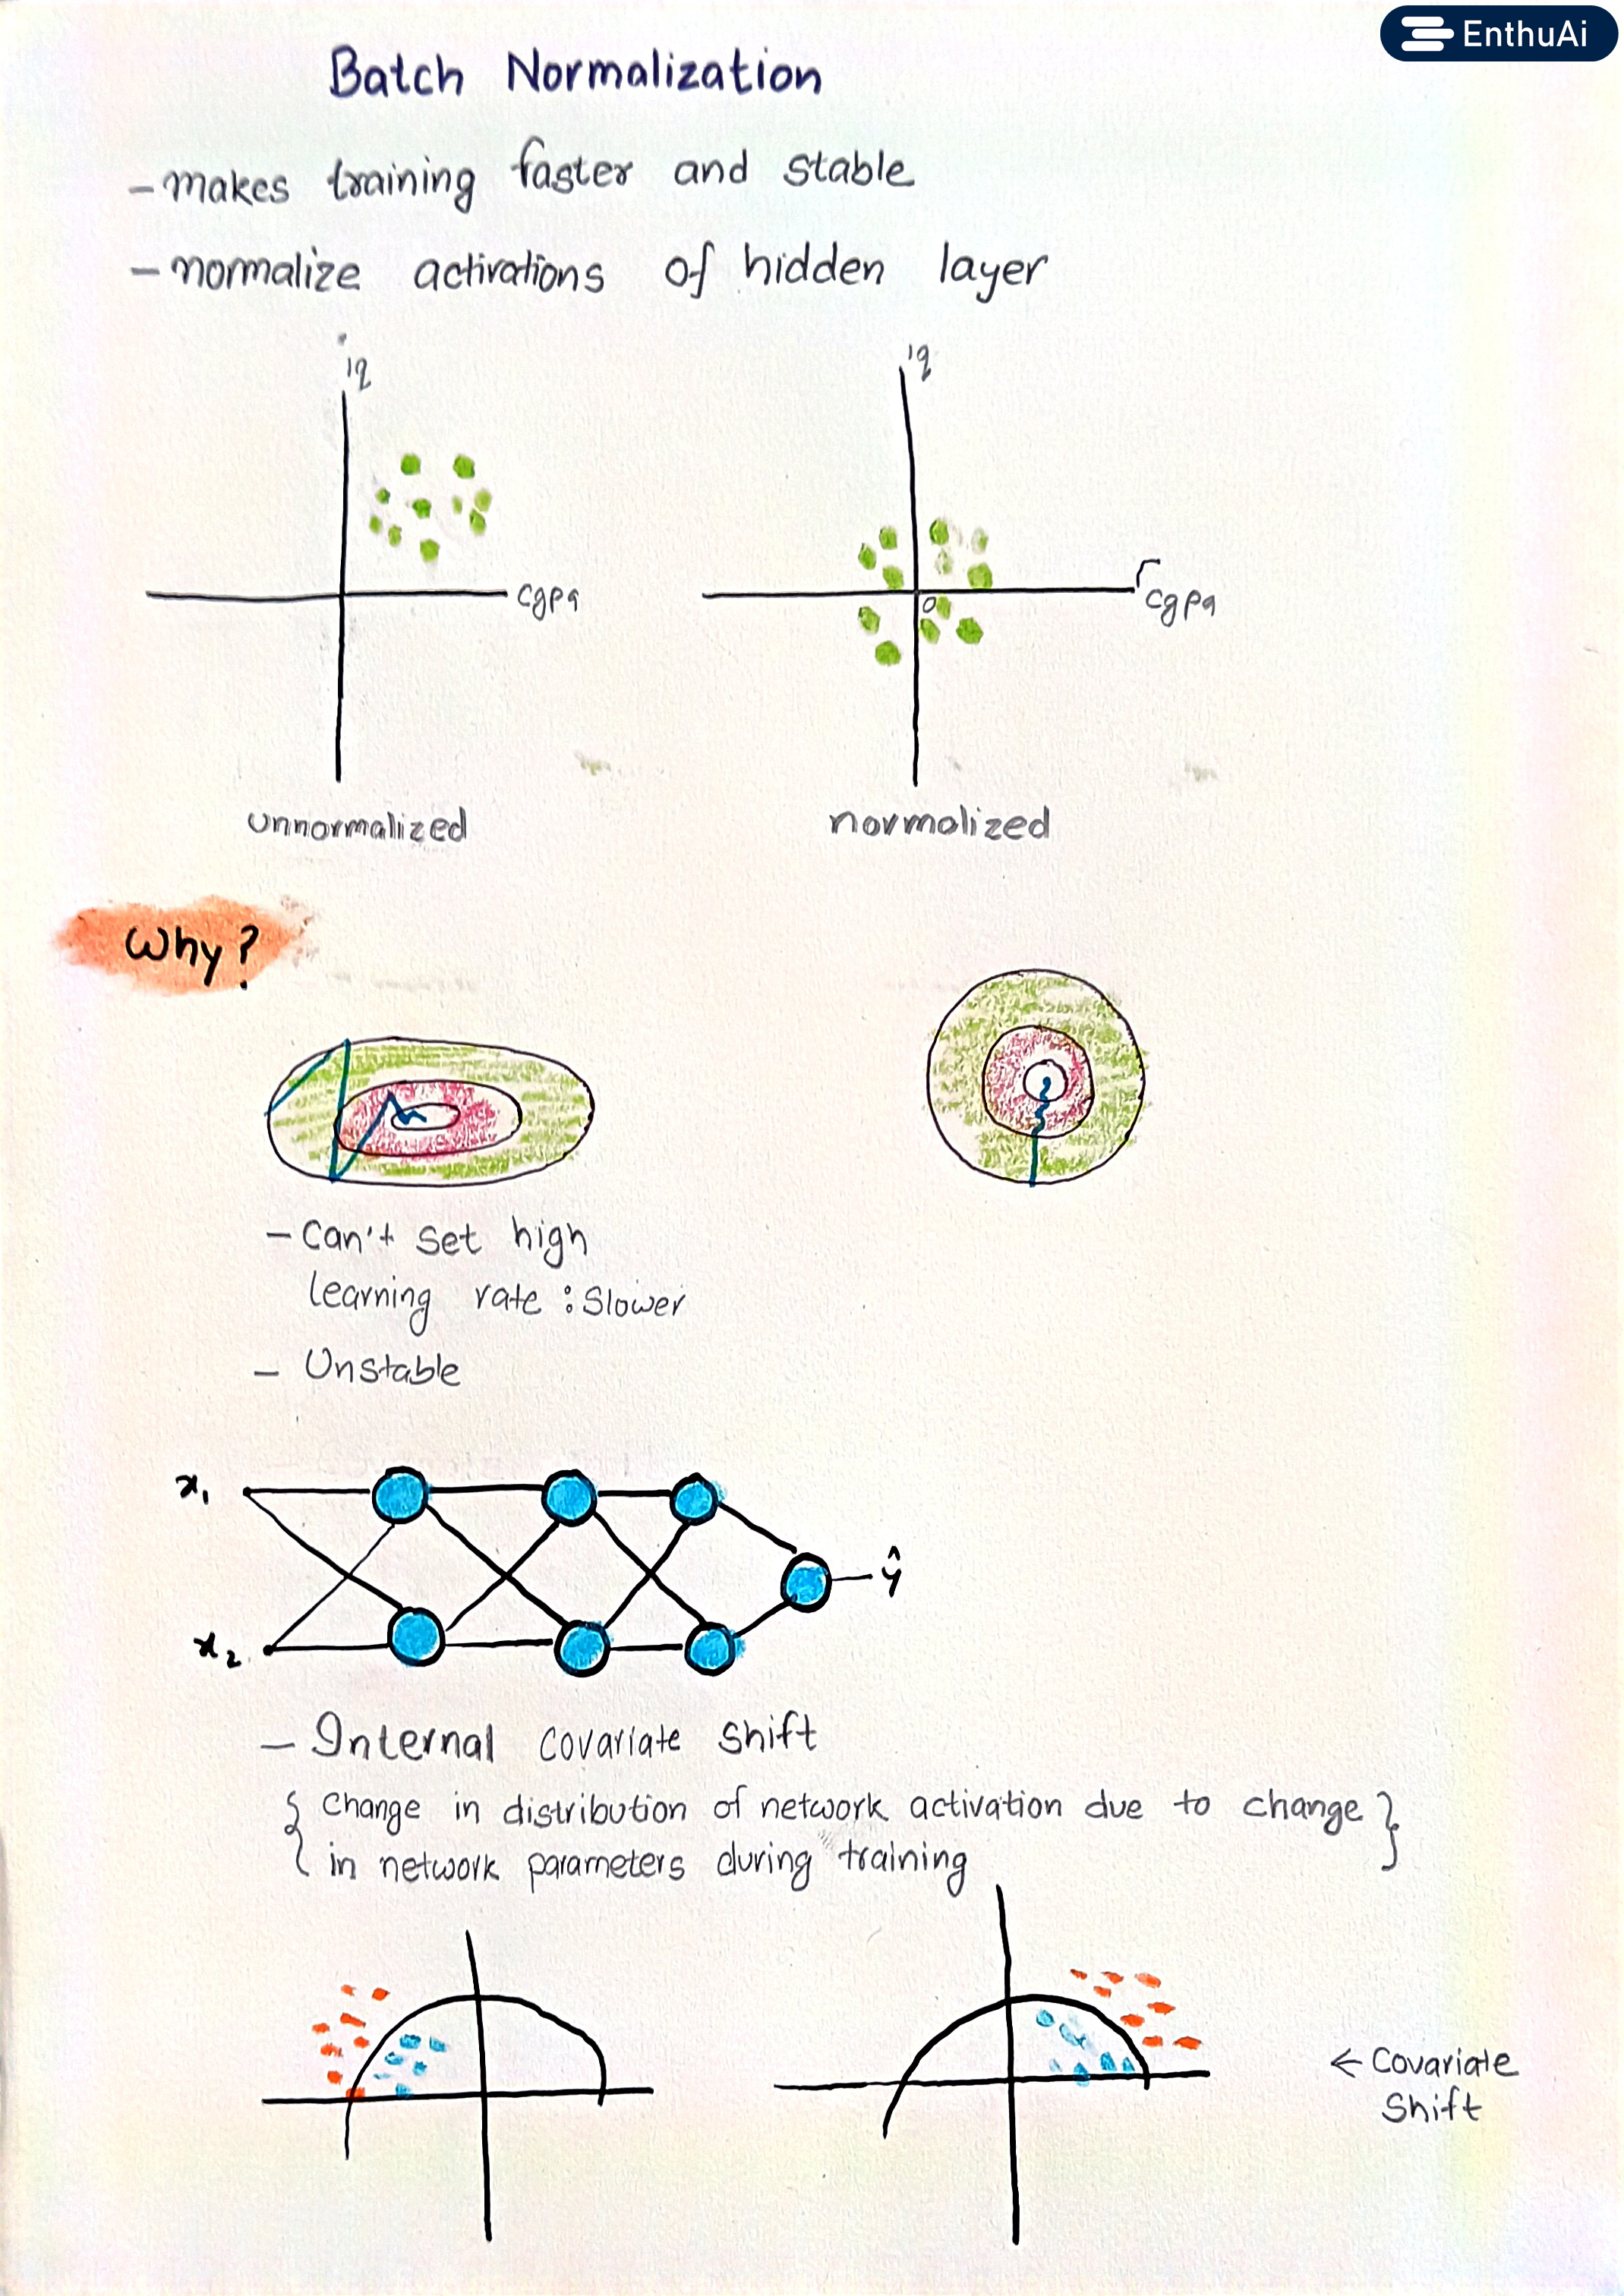 EnthuAi
Batch Normalization
- makes training faster and stable
- normalize activations of hidden layer
iq
cgpa
unnormalized
iq
0
cgpa
normalized
Why?
- Can't set high
learning rate : Slower
- Unstable
x1
x2
ŷ
- Internal covariate shift
{ change in distribution of network activation due to change }
in network parameters during training
← Covariate
Shift